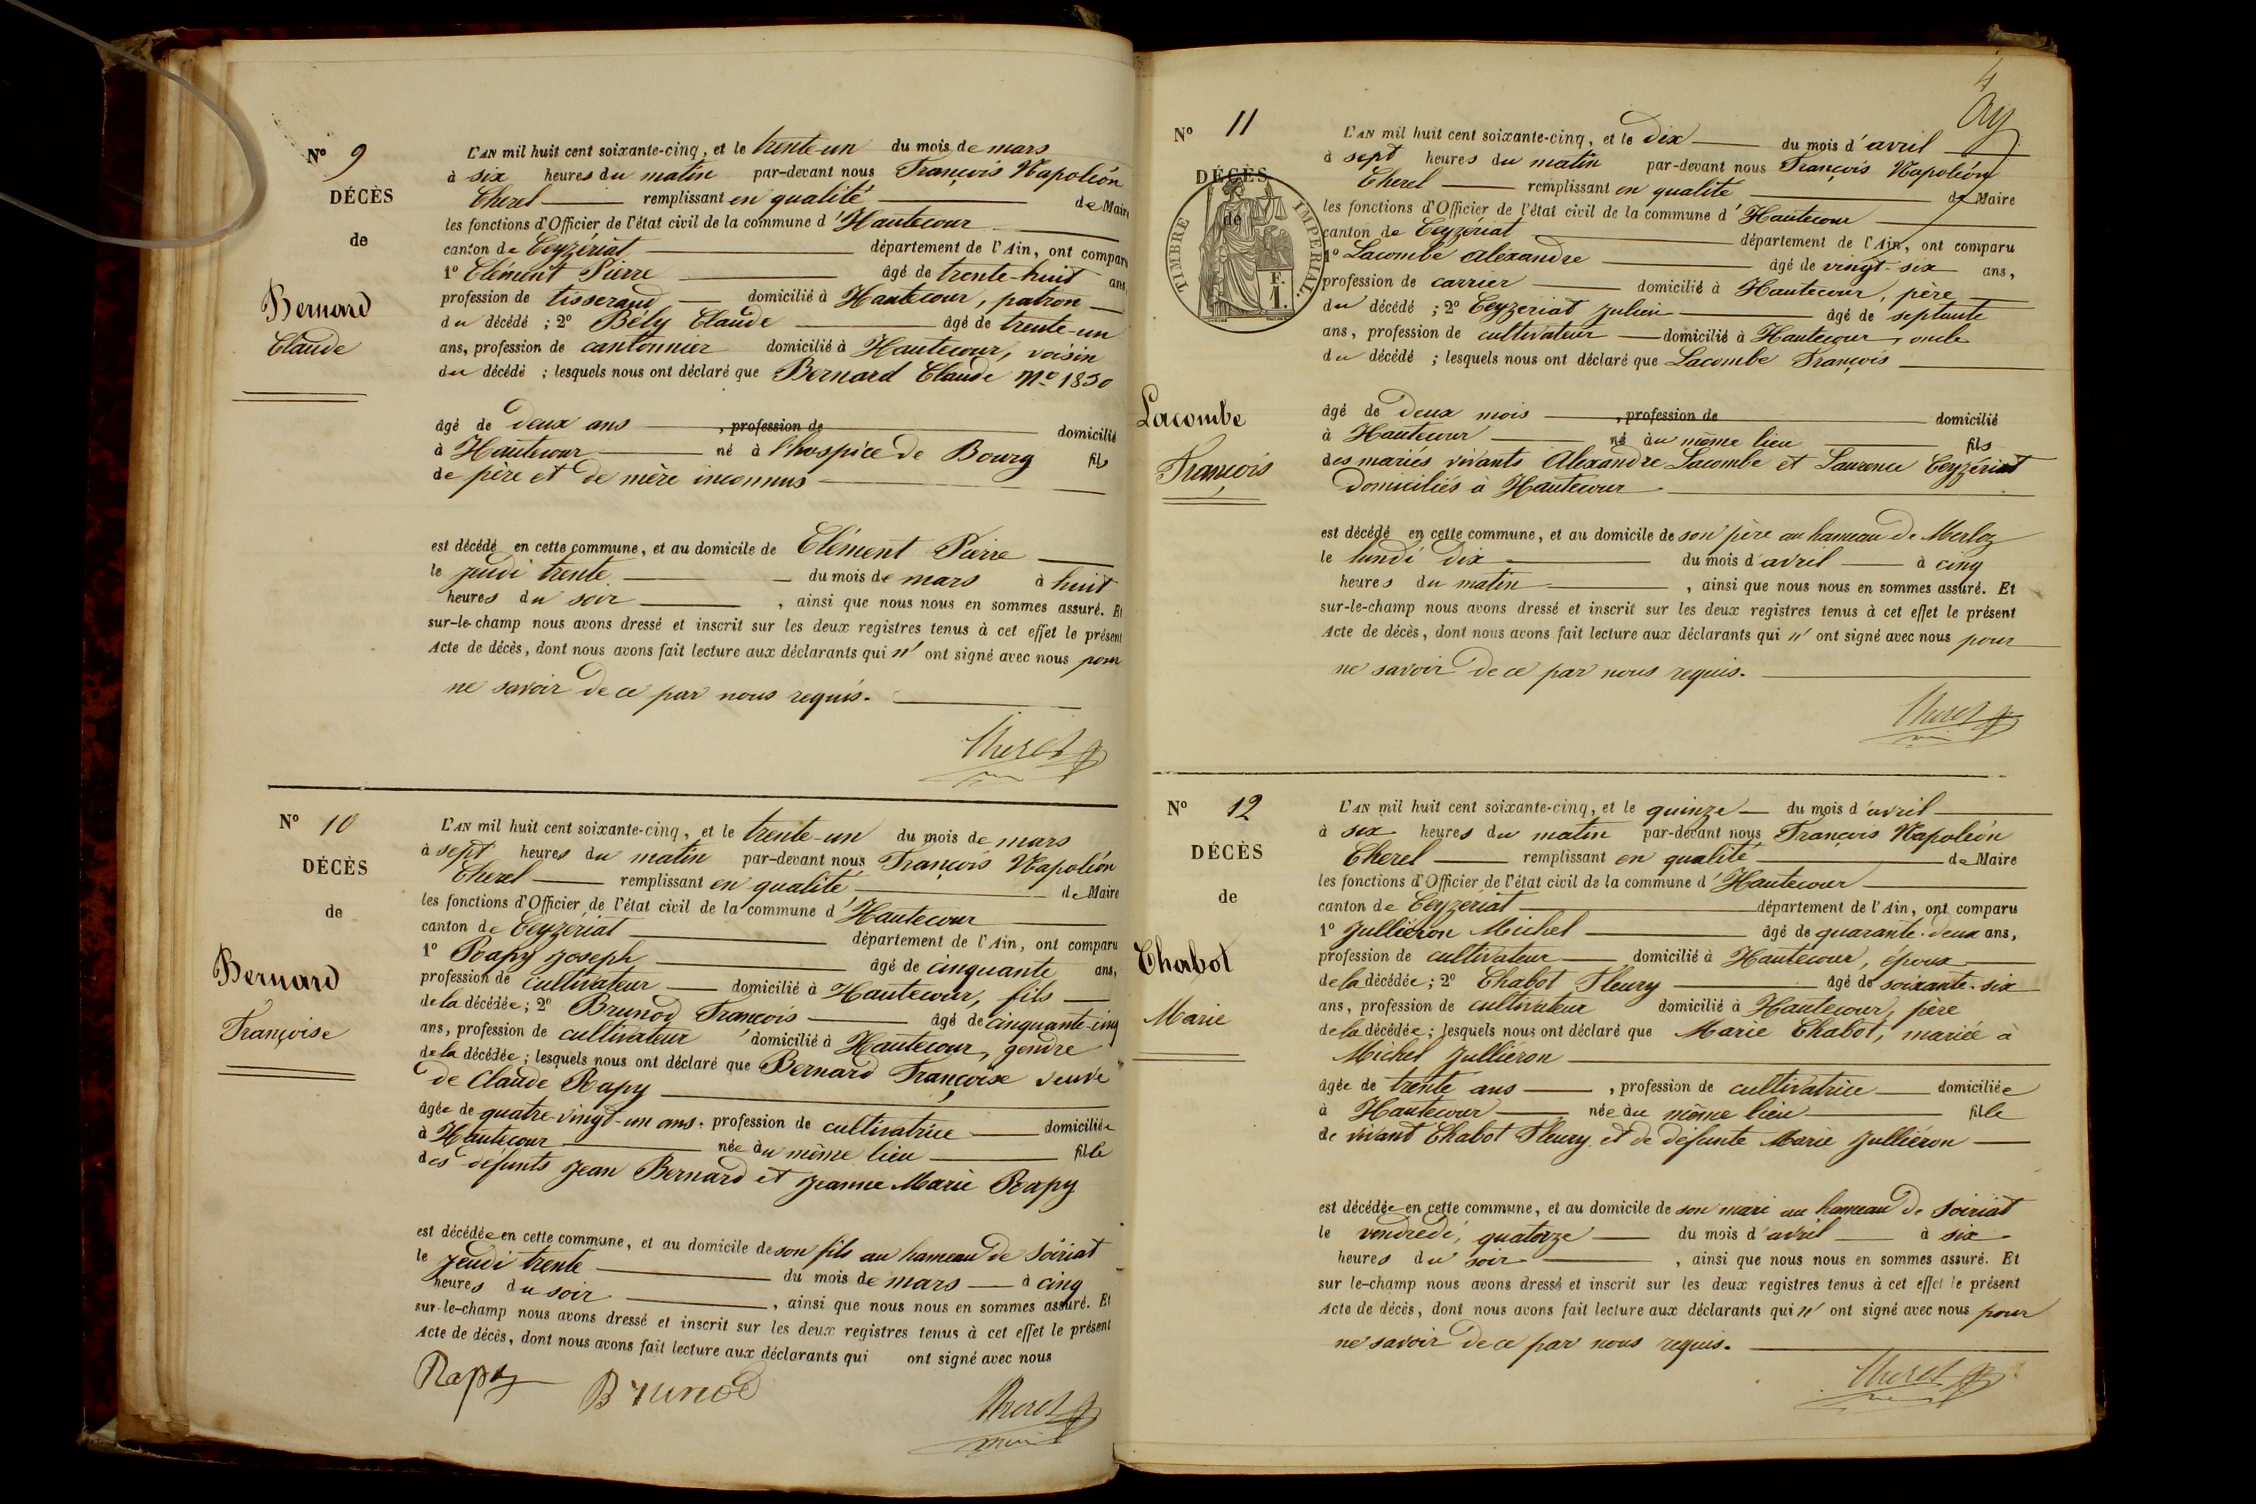 Nº 9
DÉCÈS
de
Bernard
Claude
L'AN mil huit cent soixante-cinq, et le trente-un du mois de mars
à six heures du matin par-devant nous François Napoléon
Cherel remplissant en qualité de Maire
les fonctions d'Officier de l'état civil de la commune d'Hautecour
canton de Ceyzériat département de l'Ain, ont comparu
1º Clément Pierre âgé de trente-huit ans,
profession de tisserand domicilié à Hautecour, patron
du décédé ; 2º Bély Claude âgé de trente-un
ans, profession de cantonnier domicilié à Hautecour, voisin
du décédé ; lesquels nous ont déclaré que Bernard Claude Nº 1850
âgé de deux ans , profession de domicilié
à Hautecour né à l'hospice de Bourg fils
de père et de mère inconnus
est décédé en cette commune, et au domicile de Clément Pierre
le jeudi trente du mois de mars à huit
heures du soir , ainsi que nous nous en sommes assuré. Et
sur-le-champ nous avons dressé et inscrit sur les deux registres tenus à cet effet le présent
Acte de décès, dont nous avons fait lecture aux déclarants qui n'ont signé avec nous pour
ne savoir de ce par nous requis.
Cherel
Nº 10
DÉCÈS
de
Bernard
Françoise
L'AN mil huit cent soixante-cinq, et le trente-un du mois de mars
à sept heures du matin par-devant nous François Napoléon
Cherel remplissant en qualité de Maire
les fonctions d'Officier de l'état civil de la commune d'Hautecour
canton de Ceyzériat département de l'Ain, ont comparu
1º Rapy Joseph âgé de cinquante ans,
profession de cultivateur domicilié à Hautecour, fils
de la décédée ; 2º Brunod François âgé de cinquante-cinq
ans, profession de cultivateur domicilié à Hautecour, gendre
de la décédée ; lesquels nous ont déclaré que Bernard Françoise veuve
de Claude Rapy
âgée de quatre-vingt-un ans, profession de cultivatrice domiciliée
à Hautecour née au même lieu fille
des défunts Jean Bernard et Jeanne Marie Rapy
est décédée en cette commune, et au domicile de son fils au hameau de Soiriat
le jeudi trente du mois de mars à cinq
heures du soir , ainsi que nous nous en sommes assuré. Et
sur-le-champ nous avons dressé et inscrit sur les deux registres tenus à cet effet le présent
Acte de décès, dont nous avons fait lecture aux déclarants qui ont signé avec nous
Rapy Brunod
Cherel
4
Nº 11
DÉCÈS
de
TIMBRE IMPÉRIAL.
F.
1.
Lacombe
François
L'AN mil huit cent soixante-cinq, et le dix du mois d'avril
à sept heures du matin par-devant nous François Napoléon
Cherel remplissant en qualité de Maire
les fonctions d'Officier de l'état civil de la commune d'Hautecour
canton de Ceyzériat département de l'Ain, ont comparu
1º Lacombe Alexandre âgé de vingt-six ans,
profession de carrier domicilié à Hautecour, père
du décédé ; 2º Ceyzeriat Julien âgé de septante
ans, profession de cultivateur domicilié à Hautecour, oncle
du décédé ; lesquels nous ont déclaré que Lacombe François
âgé de deux mois , profession de domicilié
à Hautecour né au même lieu fils
des mariés vivants Alexandre Lacombe et Laurence Ceyzériat
domiciliés à Hautecour
est décédé en cette commune, et au domicile de son père au hameau de Merloz
le lundi dix du mois d'avril à cinq
heures du matin , ainsi que nous nous en sommes assuré. Et
sur-le-champ nous avons dressé et inscrit sur les deux registres tenus à cet effet le présent
Acte de décès, dont nous avons fait lecture aux déclarants qui n'ont signé avec nous pour
ne savoir de ce par nous requis.
Cherel
Nº 12
DÉCÈS
de
Chabot
Marie
L'AN mil huit cent soixante-cinq, et le quinze du mois d'avril
à six heures du matin par-devant nous François Napoléon
Cherel remplissant en qualité de Maire
les fonctions d'Officier de l'état civil de la commune d'Hautecour
canton de Ceyzériat département de l'Ain, ont comparu
1º Julliéron Michel âgé de quarante-deux ans,
profession de cultivateur domicilié à Hautecour, époux
de la décédée ; 2º Chabot Fleury âgé de soixante-six
ans, profession de cultivateur domicilié à Hautecour, père
de la décédée ; lesquels nous ont déclaré que Marie Chabot, mariée à
Michel Julliéron
âgée de trente ans , profession de cultivatrice domiciliée
à Hautecour née au même lieu fille
de vivant Chabot Fleury et de défunte Marie Julliéron
est décédée en cette commune, et au domicile de son mari au hameau de Soiriat
le vendredi quatorze du mois d'avril à six
heures du soir , ainsi que nous nous en sommes assuré. Et
sur le-champ nous avons dressé et inscrit sur les deux registres tenus à cet effet le présent
Acte de décès, dont nous avons fait lecture aux déclarants qui n'ont signé avec nous pour
ne savoir de ce par nous requis.
Cherel